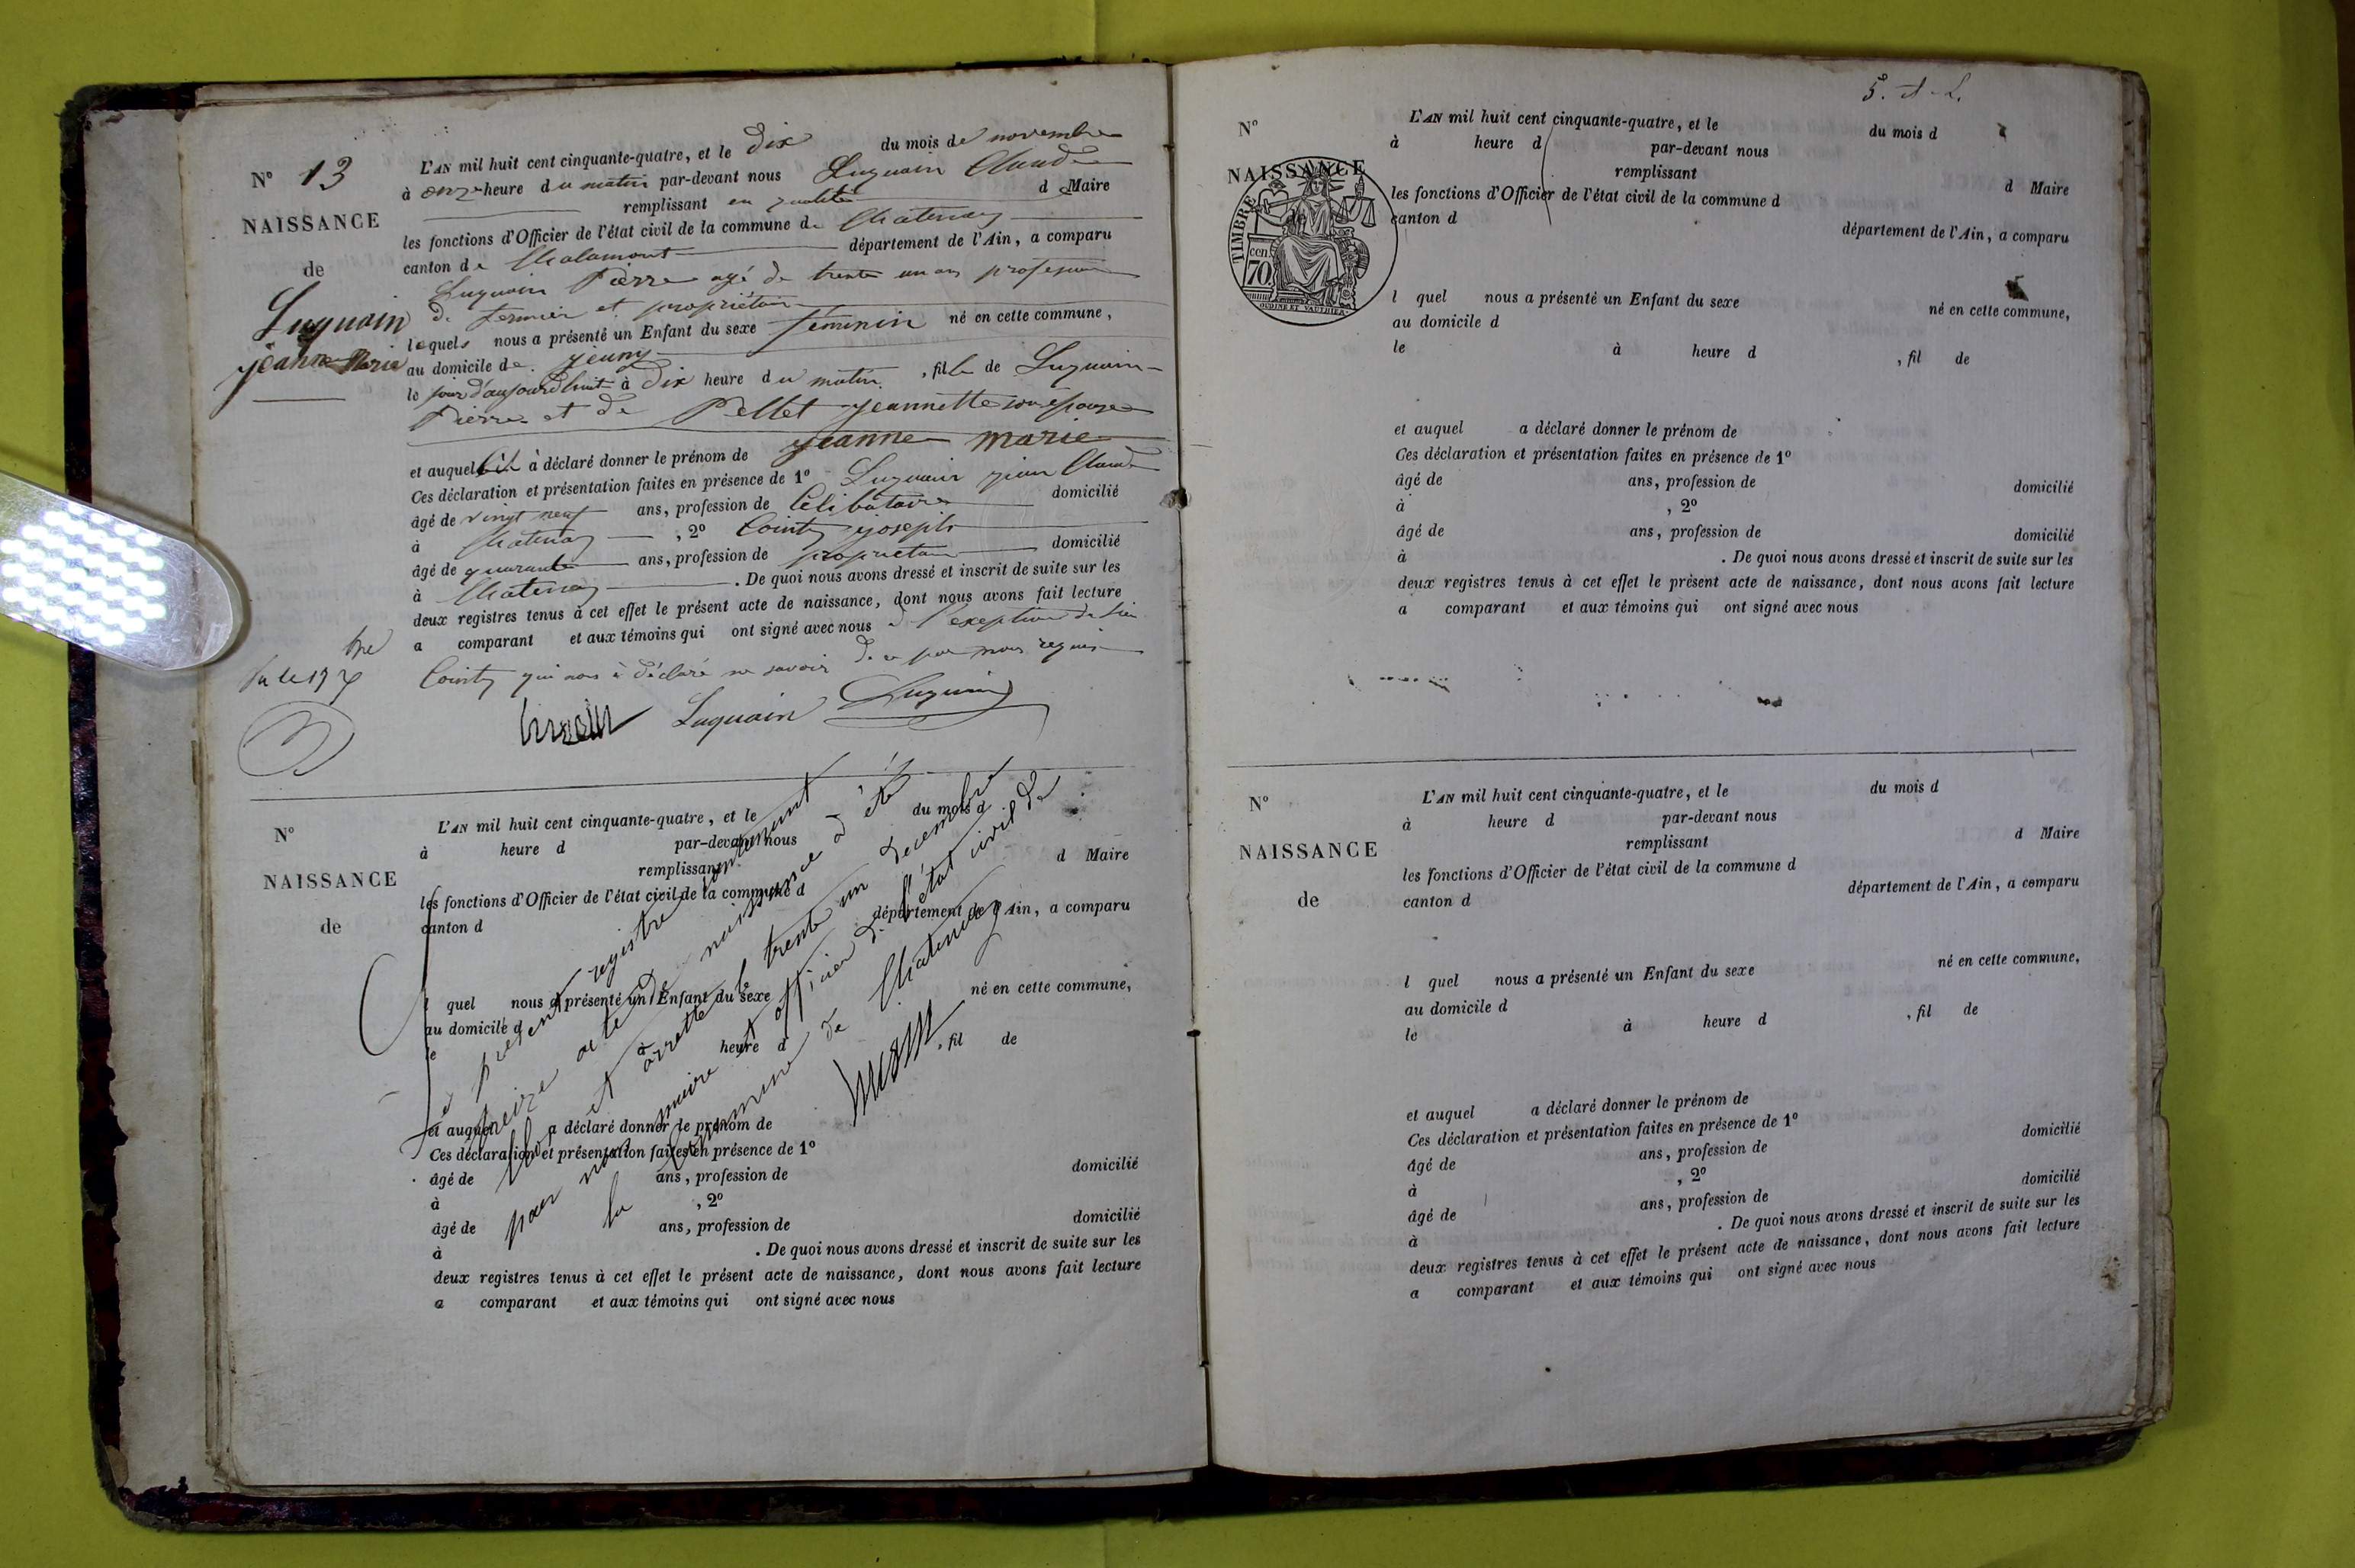 N° 13
NAISSANCE
de
Luquain
jeanne Marie
L'AN mil huit cent cinquante-quatre, et le dix du mois de novembre
à onze heure du matin par-devant nous Luquain Claude
remplissant en qualité de Maire
les fonctions d'Officier de l'état civil de la commune de Chatenay
canton de Chalamont département de l'Ain, a comparu
Luquain Pierre agé de trente un ans profession
de fermier et propriétaire
lequel nous a présenté un Enfant du sexe féminin né en cette commune,
au domicile de
le jour d'aujourd'huit à dix heure du matin, fille de Luquain
Pierre et de Pellet jeannette son épouse
et auquel il à déclaré donner le prénom de jeanne marie
Ces déclaration et présentation faites en présence de 1° Luquain jean Claude
âgé de vingt neuf ans, profession de Célibataire domicilié
à Chatenay, 2° Cointy joseph
âgé de quarante ans, profession de propriétaire domicilié
à Chatenay. De quoi nous avons dressé et inscrit de suite sur les
deux registres tenus à cet effet le présent acte de naissance, dont nous avons fait lecture
a comparant et aux témoins qui ont signé avec nous à l'exeption
Cointy qui nous à déclaré ne savoir de ce par nous requis
Luquain Luquain
N°
NAISSANCE
de
L'AN mil huit cent cinquante-quatre, et le du mois d
à heure d par-devant nous
remplissant d Maire
les fonctions d'Officier de l'état civil de la commune d
canton d département de l'Ain, a comparu
l quel nous a présenté un Enfant du sexe né en cette commune,
au domicile d
le à heure d , fil de
et auquel a déclaré donner le prénom de
Ces déclaration et présentation faites en présence de 1°
âgé de ans, profession de domicilié
à , 2°
âgé de ans, profession de domicilié
à . De quoi nous avons dressé et inscrit de suite sur les
deux registres tenus à cet effet le présent acte de naissance, dont nous avons fait lecture
a comparant et aux témoins qui ont signé avec nous
Le présent registre contenant
treize acte de naissance a été
clos et arretté le trente un decembre
par nous maire et officier de l'état civil de
la commune de Chatenay
5.
N°
NAISSANCE
de
TIMBRE
70 cen.
L'AN mil huit cent cinquante-quatre, et le du mois d
à heure d par-devant nous
remplissant d Maire
les fonctions d'Officier de l'état civil de la commune d
canton d département de l'Ain, a comparu
l quel nous a présenté un Enfant du sexe né en cette commune,
au domicile d
le à heure d , fil de
et auquel a déclaré donner le prénom de
Ces déclaration et présentation faites en présence de 1°
âgé de ans, profession de domicilié
à , 2°
âgé de ans, profession de domicilié
à . De quoi nous avons dressé et inscrit de suite sur les
deux registres tenus à cet effet le présent acte de naissance, dont nous avons fait lecture
a comparant et aux témoins qui ont signé avec nous
N°
NAISSANCE
de
L'AN mil huit cent cinquante-quatre, et le du mois d
à heure d par-devant nous
remplissant d Maire
les fonctions d'Officier de l'état civil de la commune d
canton d département de l'Ain, a comparu
l quel nous a présenté un Enfant du sexe né en cette commune,
au domicile d
le à heure d , fil de
et auquel a déclaré donner le prénom de
Ces déclaration et présentation faites en présence de 1°
âgé de ans, profession de domicilié
à , 2°
âgé de ans, profession de domicilié
à . De quoi nous avons dressé et inscrit de suite sur les
deux registres tenus à cet effet le présent acte de naissance, dont nous avons fait lecture
a comparant et aux témoins qui ont signé avec nous